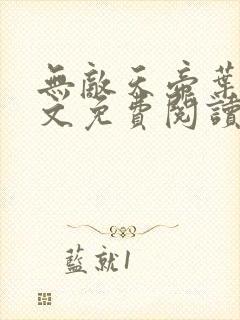 無敵天帝葉
文免費閱讀
藍就1